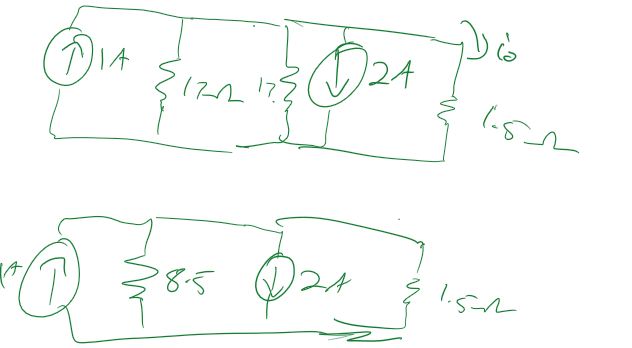 1A
17Ω
17
2A
i₀
1.5Ω
1A
8.5
2A
1.5Ω